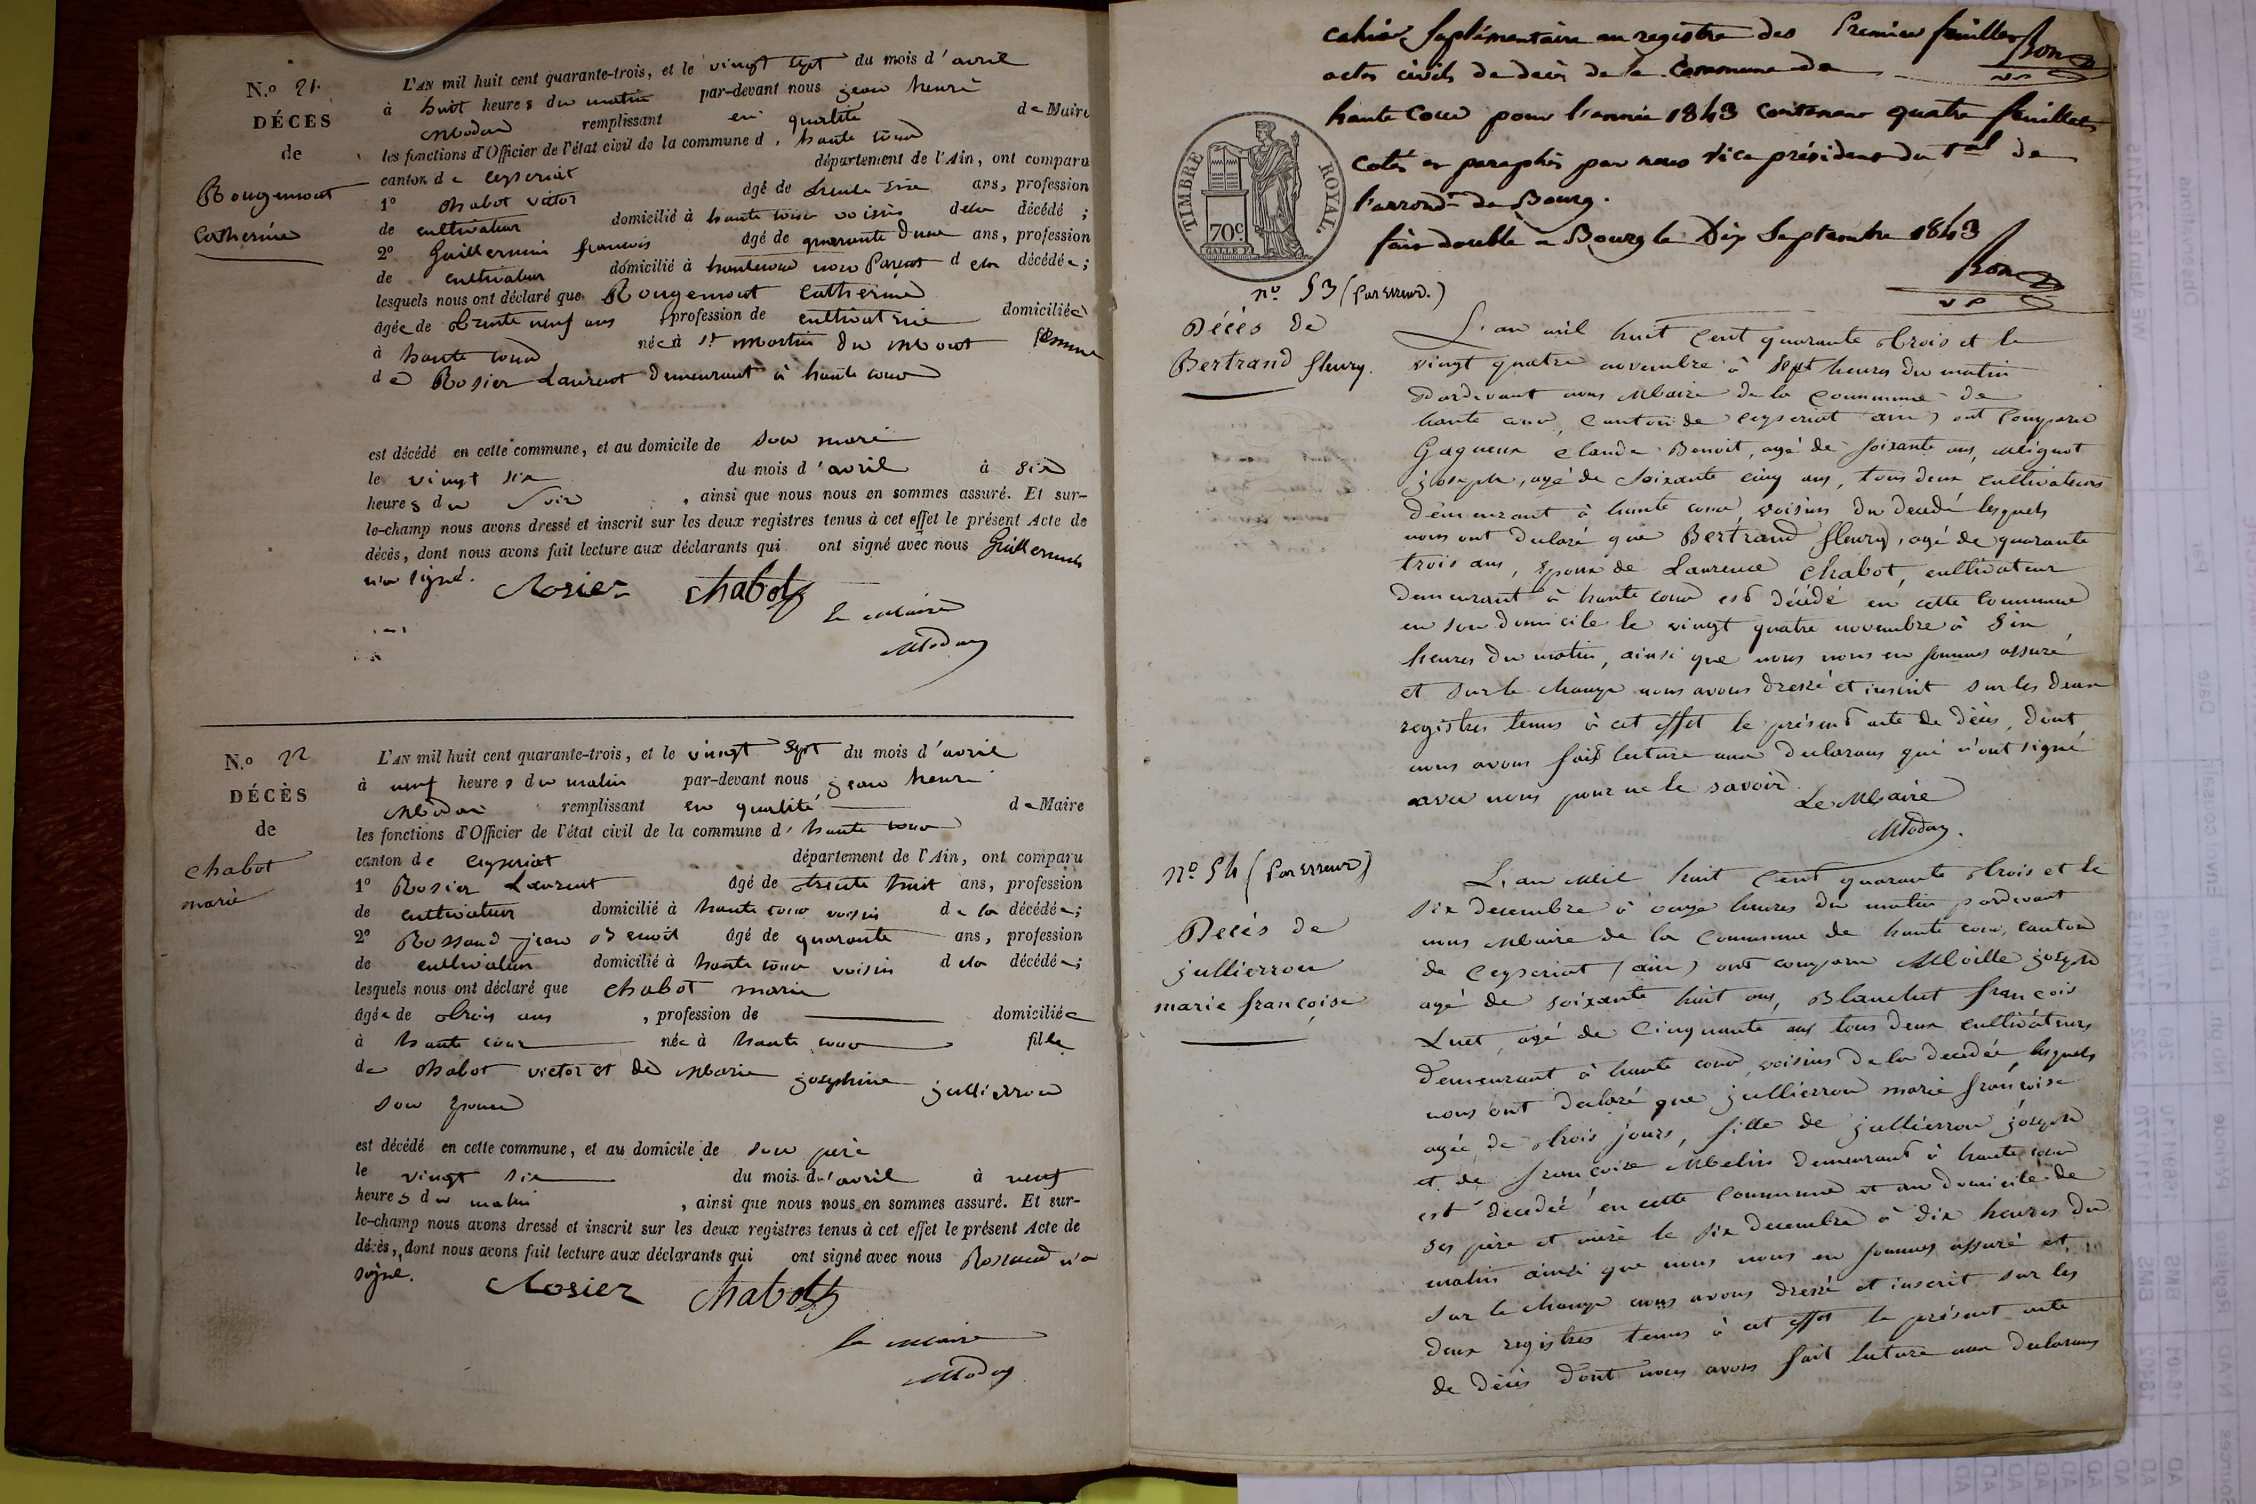 N.o 21.
DÉCES
de
Rougemont
Catherine
L'AN mil huit cent quarante-trois, et le vingt sept du mois d'avril
à huit heures du matin par-devant nous jean henri
Moday remplissant en qualité de Maire
les fonctions d'Officier de l'état civil de la commune d' haute cour
canton de Ceyseriat département de l'Ain, ont comparu
1° Chabot victor âgé de trente ans, profession
de cultivateur domicilié à haute cour voisin de la décédé ;
2° Guillermin francois âgé de quarante d'une ans, profession
de cultivateur domicilié à hautecour non Parent de la décédée ;
lesquels nous ont déclaré que Rougemont Catherine
âgée de trente neuf ans profession de cultivatrice domiciliée
à haute cour née à St Martin du Mont femme
de Rosier Laurent demeurant à haute cour
est décédé en cette commune, et au domicile de son mari
le vingt six du mois d'avril à six
heures du soir , ainsi que nous nous en sommes assuré. Et sur-
le-champ nous avons dressé et inscrit sur les deux registres tenus à cet effet le présent Acte de
décès, dont nous avons fait lecture aux déclarants qui ont signé avec nous Guillermin
n'a signé. Rosier Chabot
le Maire
Moday
N.o 22
DÉCÈS
de
Chabot
marie
L'AN mil huit cent quarante-trois, et le vingt sept du mois d'avril
à neuf heures du matin par-devant nous jean henri
Moday remplissant en qualité de Maire
les fonctions d'Officier de l'état civil de la commune d' haute cour
canton de Ceyseriat département de l'Ain, ont comparu
1° Rosier Laurent âgé de trente huit ans, profession
de cultivateur domicilié à haute cour voisin de la décédée ;
2° Rossand jean Benoit âgé de quarante ans, profession
de cultivateur domicilié à haute cour voisin de la décédée ;
lesquels nous ont déclaré que Chabot marie
âgée de trois ans , profession de domiciliée
à haute cour née à haute cour fille
de Chabot victor et de Marie josephine jullierron
son Epouse
est décédé en cette commune, et au domicile de son père
le vingt six du mois d'avril à neuf
heures du matin , ainsi que nous nous en sommes assuré. Et sur-
le-champ nous avons dressé et inscrit sur les deux registres tenus à cet effet le présent Acte de
décès, dont nous avons fait lecture aux déclarants qui ont signé avec nous Rossand n'a
signé. Rosier Chabot
le Maire
Moday
cahier suplémentaire au registre des Premier feuillet
actes civils de décès de la Commune de
haute Cour pour l'année 1843 contenant quatre feuillets
cotés et paraphés par nous vice président du tal de
l'arrondt de Bourg.
fait double à Bourg le Dix Septembre 1843
TIMBRE ROYAL
70c.
n° 53 (Par erreur.)
Décès de
Bertrand fleury.
L'an mil huit Cent quarante trois et le
vingt quatre novembre à sept heures du matin
Pardevant nous Maire de la Commune de
haute cour, Canton de Ceyseriat (ain) ont Comparu
Gagneux Claude Benoit, agé de soixante ans, Mignot
joseph, agé de soixante cinq ans, tous deux cultivateurs
demeurant à haute cour, voisins du decédé lesquels
nous ont declaré que Bertrand fleury, agé de quarante
trois ans, Epoux de Laurence Chabot, cultivateur
demeurant à haute cour est décédé en cette Commune
en son domicile le vingt quatre novembre à six
heures du matin, ainsi que nous nous en sommes assuré
et sur le champ nous avons dressé et inscrit sur les deux
registres tenus à cet effet le présent acte de décès, dont
nous avons fait lecture aux declarans qui n'ont signé
avec nous pour ne le savoir.
Le Maire
Moday.
N° 54 (Par erreur)
Décès de
jullierron
marie françoise
L'an Mil huit Cent quarante trois et le
six decembre à onze heures du matin pardevant
nous Maire de la Commune de haute cour, canton
de Ceyseriat (ain) ont comparu joseph
agé de soixante huit ans, Blanchet françois
Luet, agé de Cinquante ans tous deux cultivateurs
demeurant à haute cour, voisins de la decedée lesquels
nous ont declaré que jullierron marie françoise
agée de trois jours, fille de jullierron joseph
et de françoise Melin demeurant à haute cour
est décedée en cette Commune et au domicile de
ses père et mère le six decembre à dix heures du
matin ainsi que nous nous en sommes assuré et
sur le champ nous avons dressé et inscrit sur les
deux registres tenus à cet effet le présent acte
de décès dont nous avons fait lecture aux declarans